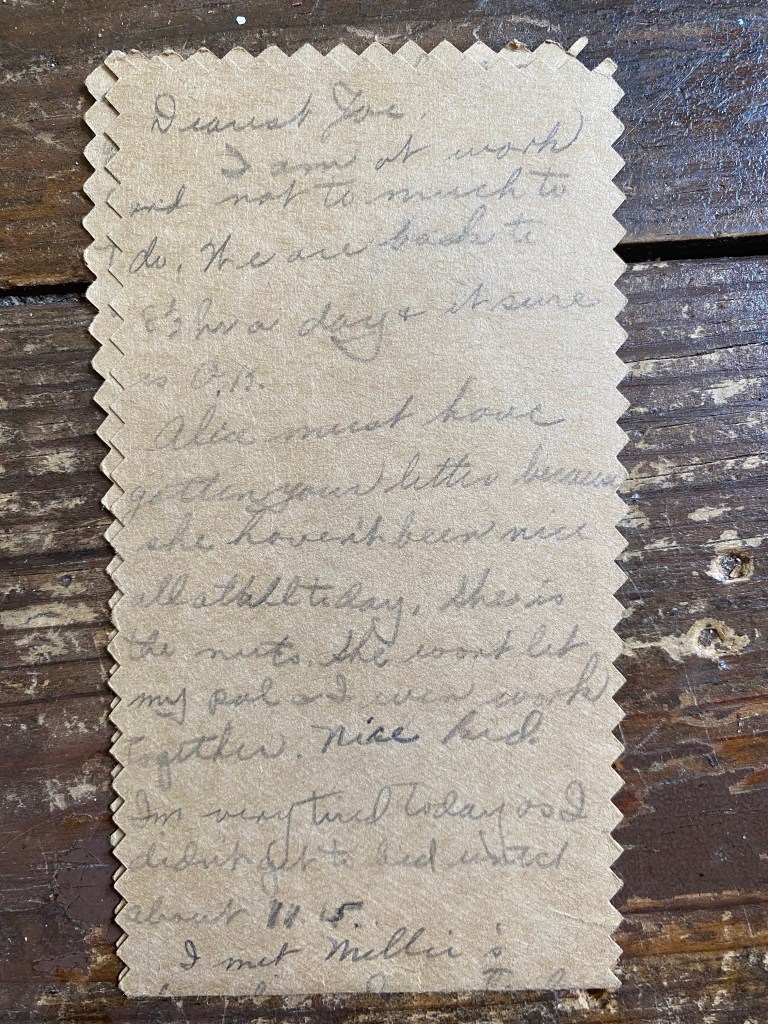 Dearest Joe,
I am at work
and not to much to
do. We are back to
8½ hr a day & it sure
is O.K.
Alice must have
gotten your letter because
she haven't been nice
all at all today. She is
the nuts. She wont let
my pal & I even work
together. Nice kid.
I'm very tired today as I
didn't get to bed untill
about 11.15.
I met Millie's